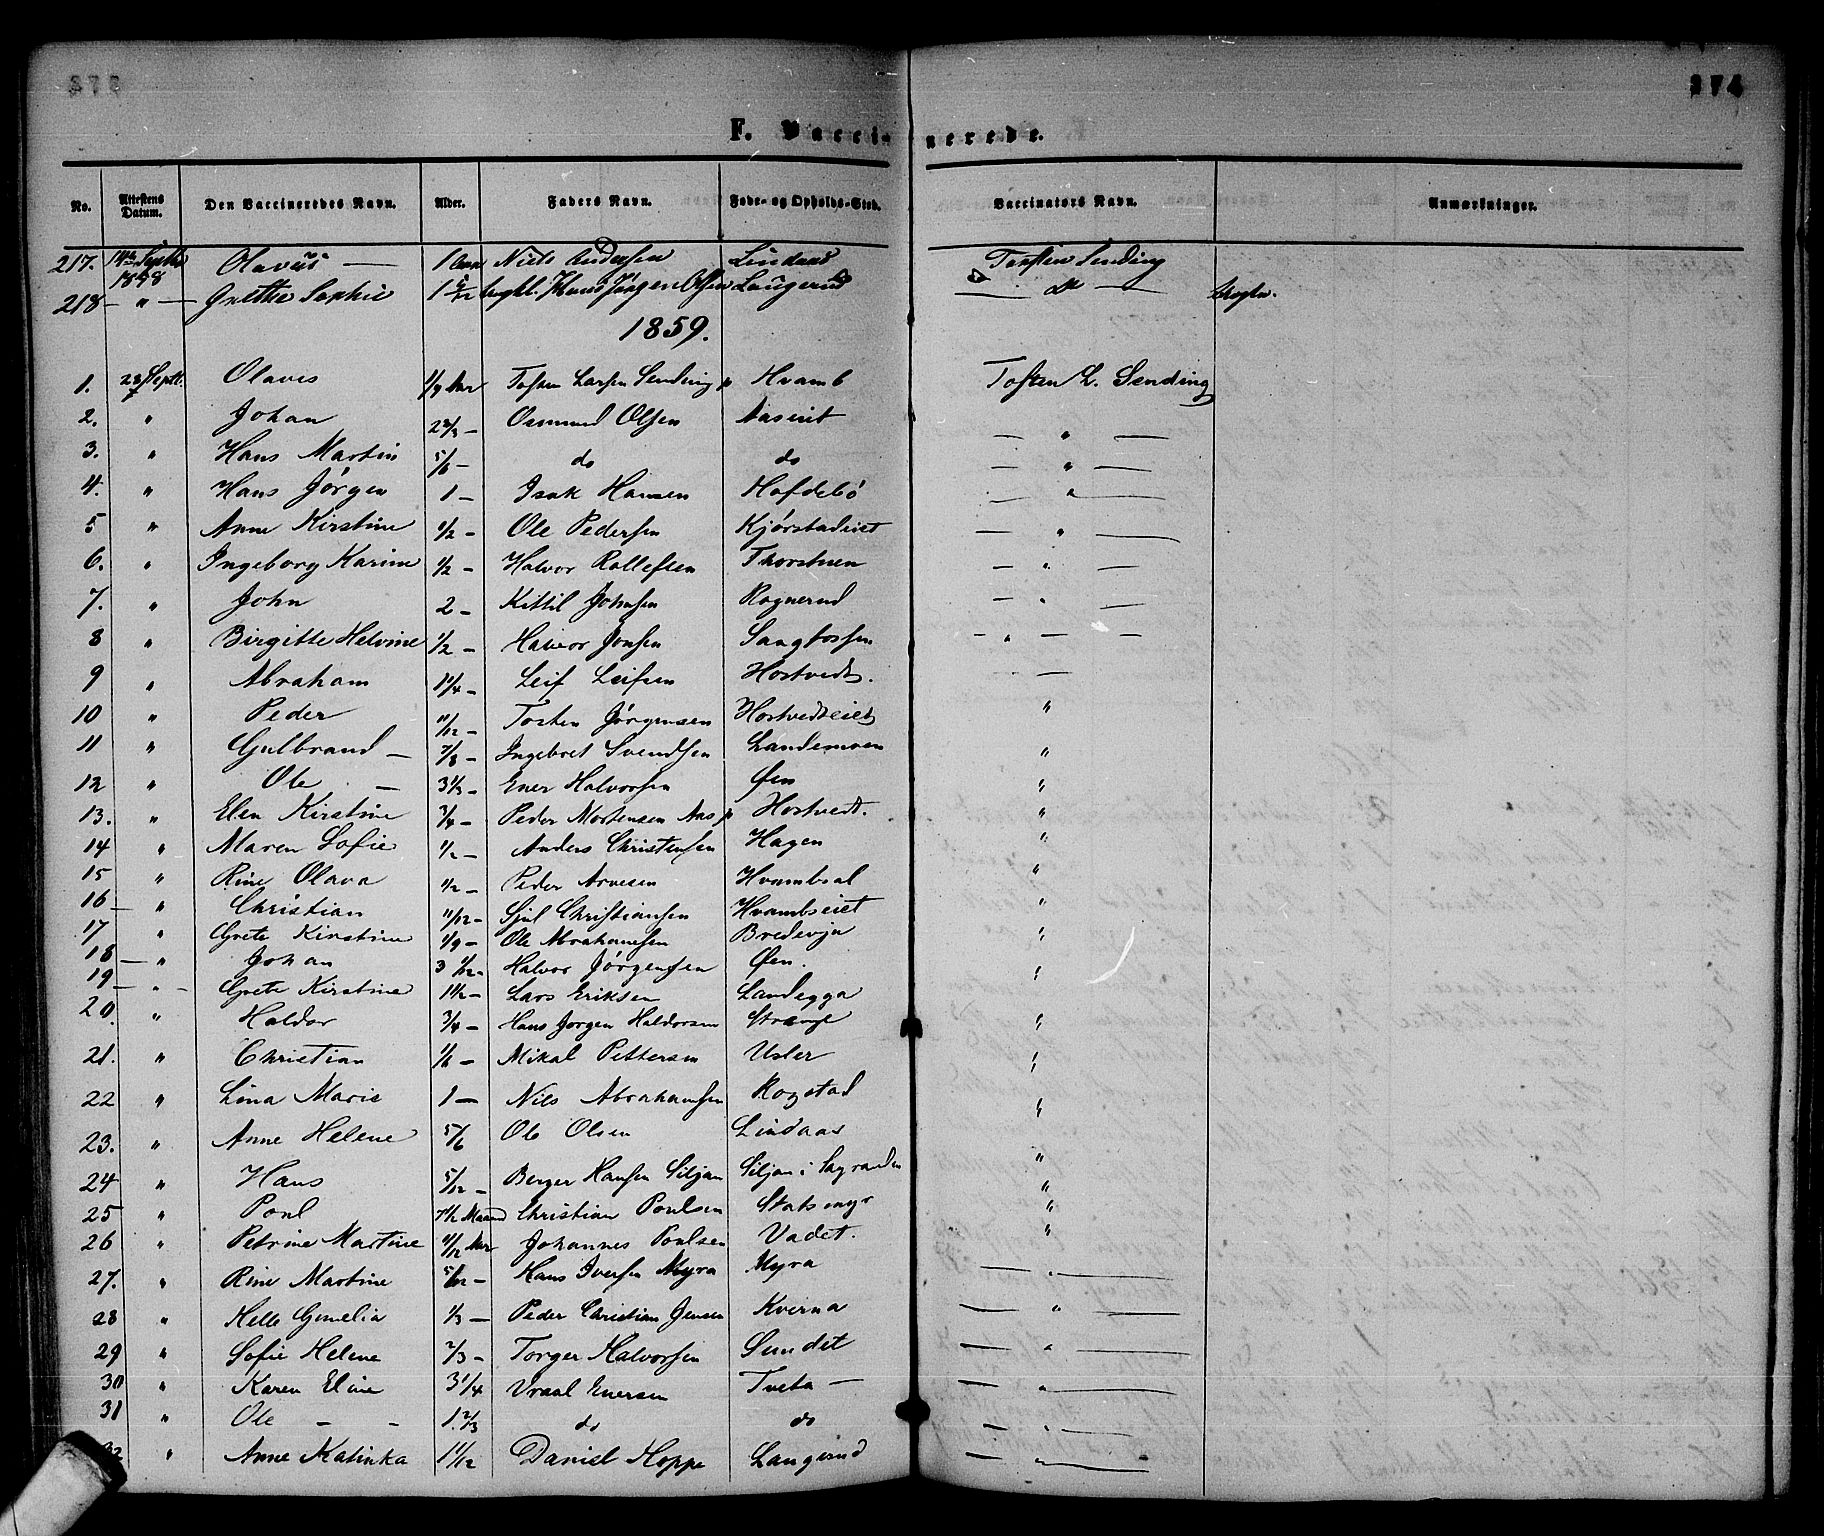 374
F. Vaccinerede.
No. Attestens Datum. Den Vaccineredes Navn. Alder. Faders Navn. Føde- og Opholds-Sted. Vaccinators Navn. Anmærkninger.
217. 14de Septbr 1858 Olaviis — 1 Aar Niels Andersen Lindaas Torsten Sending
218 — " — Grethe Sophie 1 Hans Jørgen Olsen Laugerud — do —
1859.
1. 28 Septbr. Olavis Tosten Larsen Sending p Hvamb Tosten L. Sending
2. " Johan 2 2/3 — Osmund Olsen Aaseiet — " —
3. " Hans Martin 5/6 — do do — " —
4. " Hans Jørgen 1 — Isak Hansen Hofdebø — " —
5 " Anne Kirstine 1/2 — Ole Pedersen Kjørstadeiet — " —
6. " Ingeborg Karine 1/2 — Halvor Rollefsen Thorstuen — " —
7. " John 2 — Kittil Johnsen Rognerud — " —
8 " Birgitte Helvine 1/2 — Halvor Jonsen Sangfossen — " — —
9 " Abraham 1 1/4 — Leif Leifsen Hostvedt. — —
10 " Peder 11/12 — Tosten Jørgensen Hostvedteiet "
11 " Gulbrand — 7/8 — Ingebret Svendsen Landemoen "
12 " Ole — 3 1/3 — Ener Halvorsen Øen "
13. " Elen Kirstine 3/4 — Peder Mortensen Aas p Hostvedt. "
14 " Maren Sofie 1/2 — Anders Christensen Hagen "
15 " Rine Olava 1/2 — Peder Arvesen Hvambsal "
16 — " Christian 11/12 — Sjul Christiansen Hvambseiet "
17 " Grete Kirstine 1/9 — Ole Abrahamsen Bredevja "
18 — " Johan 3 1/12 — Halvor Jørgensen Øen. "
19 — " — Grete Kirstine 1 1/2 — Lars Eriksen Landegga
20. " Haldor 3/4 — Hans Jørgen Haldorsen Strange "
21. " Christian 1/6 — Mikal Pettersen Usler "
22 " Lina Marie 1 — Nils Abrahamsen Rogstad "
23. " Anne Helene 5/6 Ole Olsen Lindaas
24 " Hans 5/12 — Berger Hansen Siljan Siljan i "
25 " Poul 7 1/2 Maaned Christian Poulsen Statsmyr "
26 " Petrine Martine 11/12 Aar Johannes Poulsen Vadet. "
27. " Rine Martine 5/12 — Hans Iversen Myra Myra — " —
28 " Helle Gunelia 1/3 — Peder Christian Jensen Kverna — " —
29 " Sofie Helene 2/3 — Torger Halvorsen Sundet — " —
30 " Karen Eline 3 1/4 Vraal Enersen Tveta — — " —
31 " Ole — — 1 2/3 do do — " —
32 " Anne Katinka 1 1/12 Daniel Hoppe Laugerud — " —